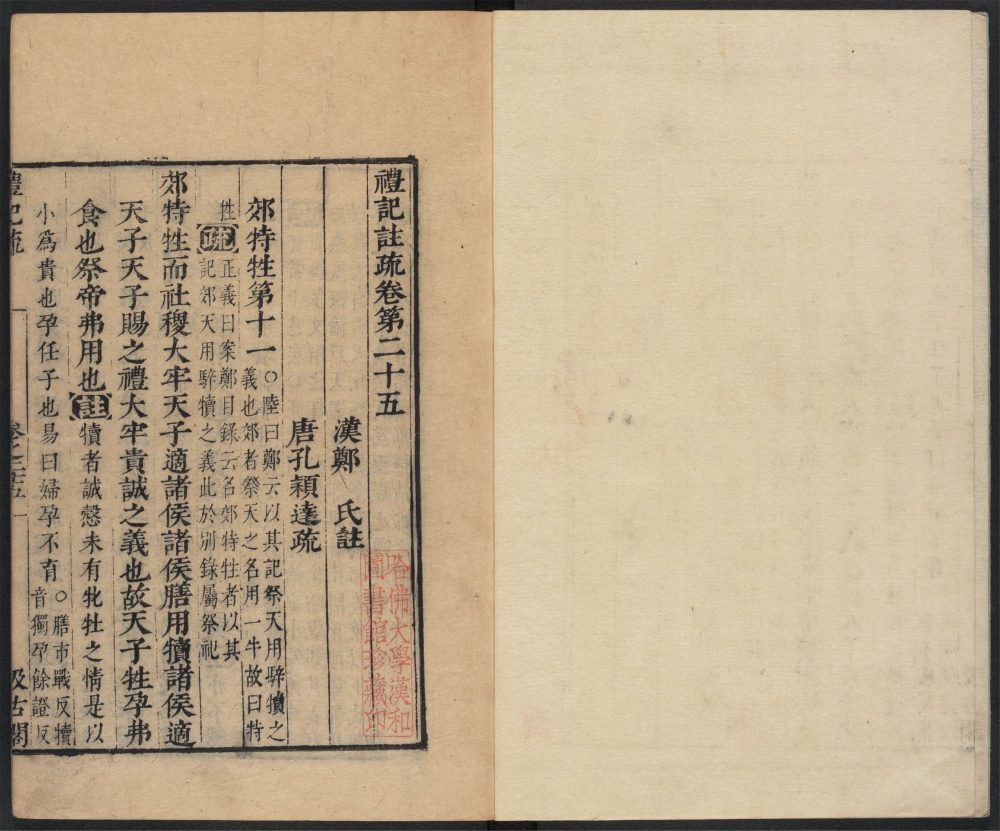 禮記註疏卷第二十五
漢鄭 氏註
唐孔穎達疏
哈佛大學漢和
圖書館珍藏印
郊特牲第十一
○陸曰鄭云以其記祭天用騂犢之
義也郊者祭天之名用一牛故曰特
牲
疏
正義曰案鄭目錄云名郊特牲者以其
記郊天用騂犢之義此於別錄屬祭祀
郊特牲而社稷大牢天子適諸侯諸侯膳用犢諸侯適
天子天子賜之禮大牢貴誠之義也故天子牲孕弗
食也祭帝弗用也註犢者誠慤未有牝牡之情是以
小為貴也孕任子也易曰婦孕不育
○膳市戰反犢
音獨孕餘證反
禮記疏
卷之二十五
汲古閣